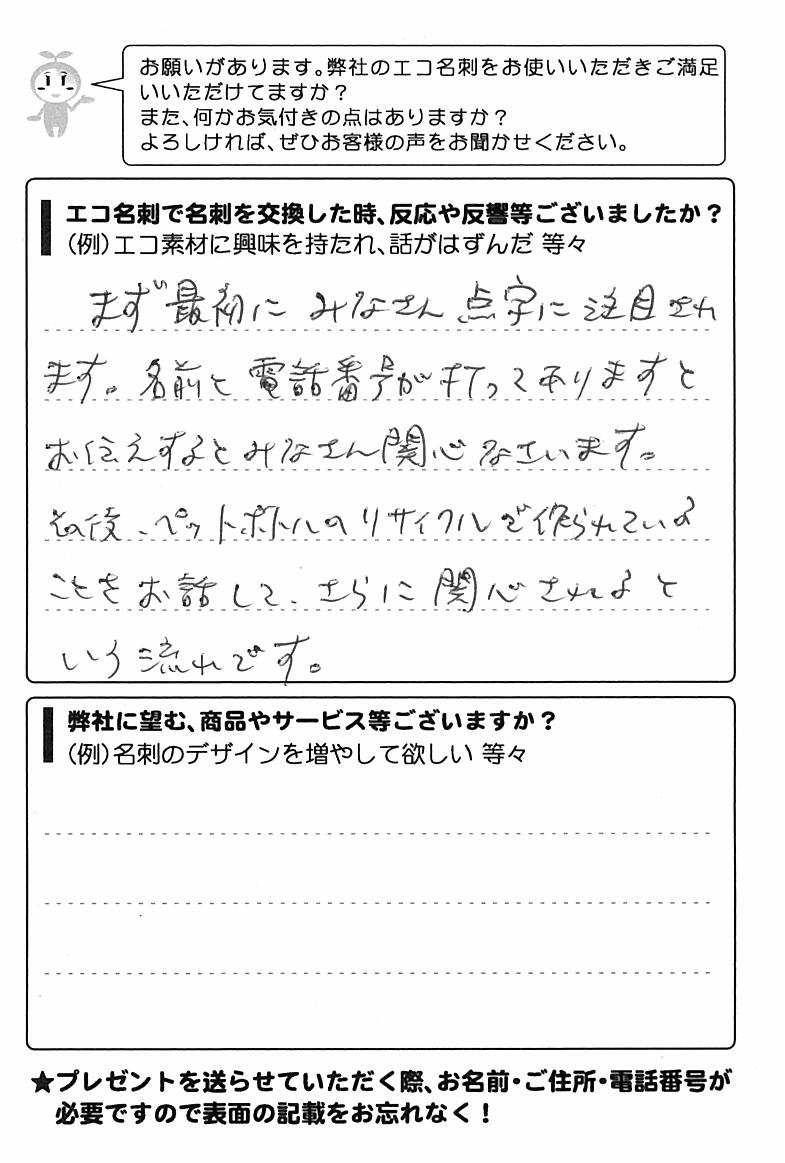 お願いがあります。弊社のエコ名刺をお使いいただきご満足
いいただけてますか？
また、何かお気付きの点はありますか？
よろしければ、ぜひお客様の声をお聞かせください。
エコ名刺で名刺を交換した時、反応や反響等ございましたか？
（例）エコ素材に興味を持たれ、話がはずんだ 等々
まず最初に みなさん 点字に注目され
ます。名前と電話番号が打ってありますと
お伝えするとみなさん関心なさいます。
その後、ペットボトルのリサイクルで作られている
ことをお話して、さらに関心されると
いう流れです。
弊社に望む、商品やサービス等ございますか？
（例）名刺のデザインを増やして欲しい 等々
★プレゼントを送らせていただく際、お名前・ご住所・電話番号が
必要ですので表面の記載をお忘れなく！